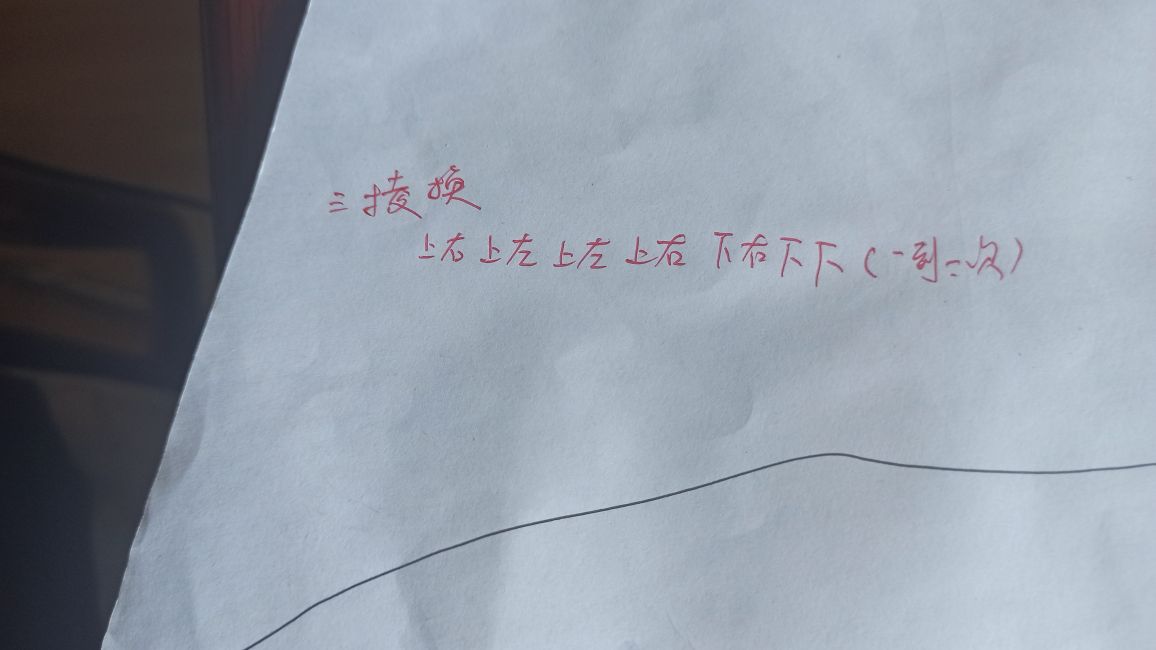 三棱换
上右上左上左上右下右下下(一到二次)